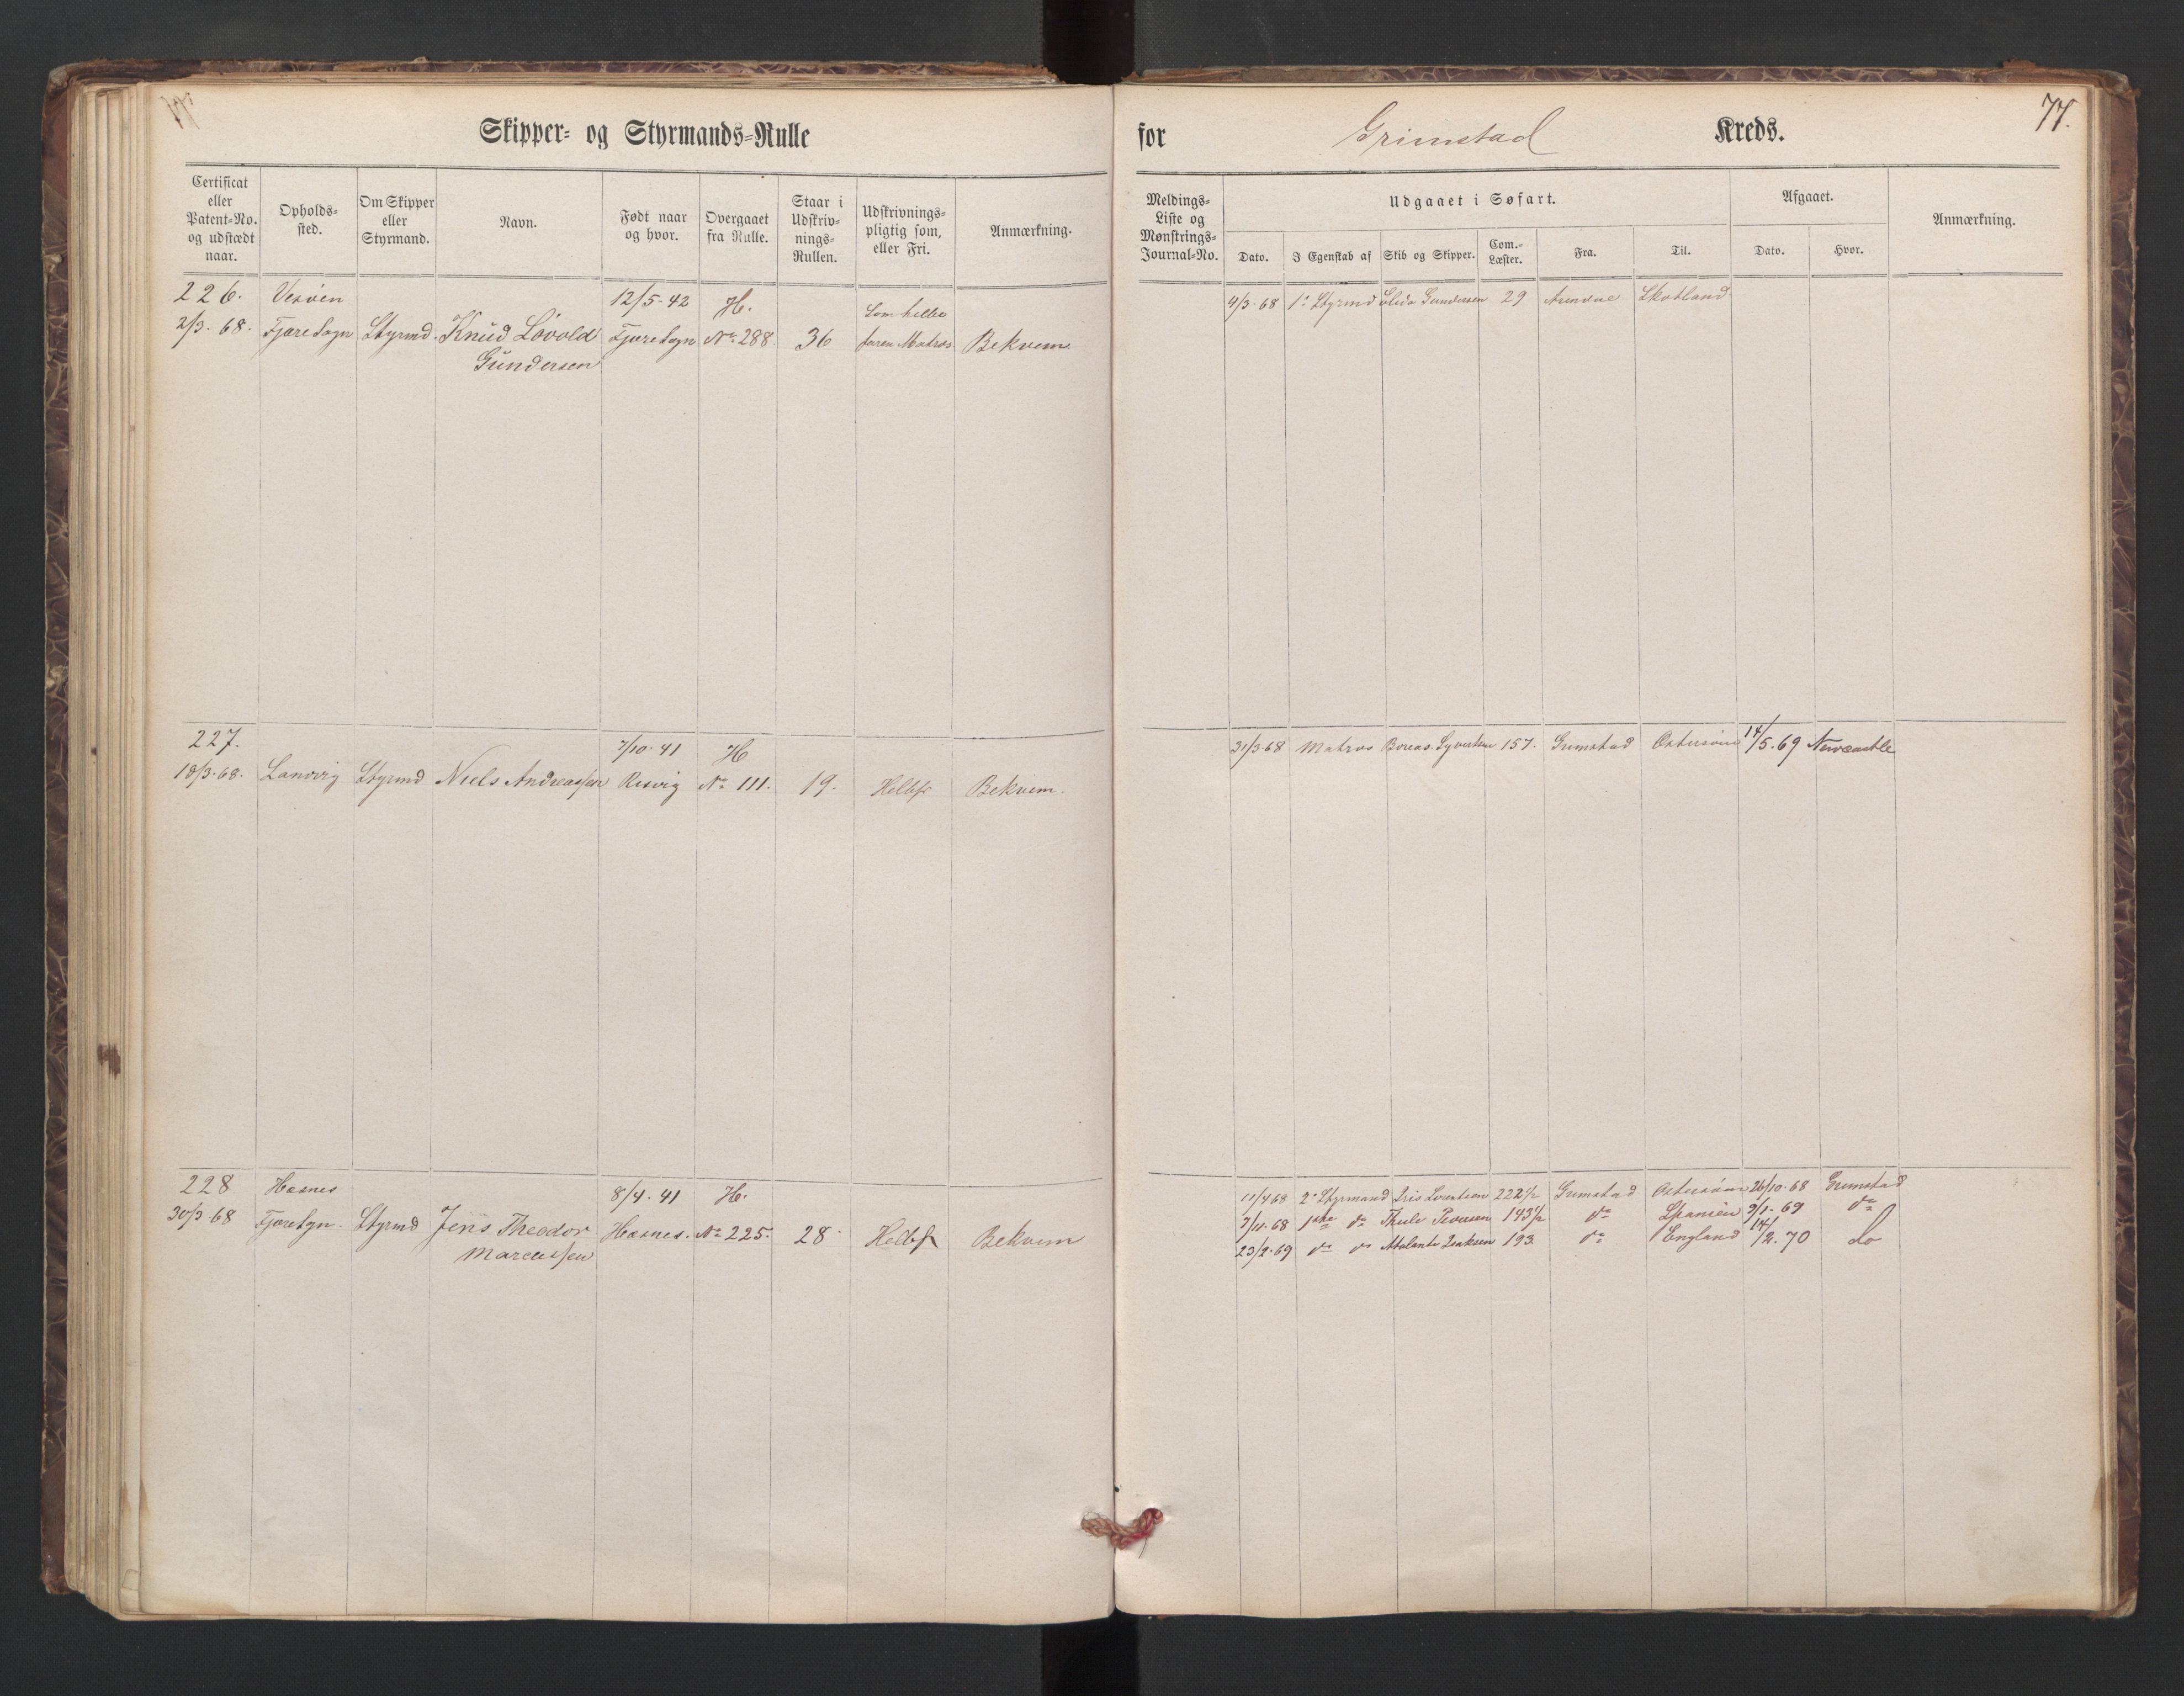 77.
Skipper- og Styrmands-Rulle
for Grimstad Kreds.
Certificat eller Patent-No. og udstædt naar.
Opholds-sted.
Om Skipper eller Styrmand.
Navn.
Født naar og hvor.
Overgaaet fra Rulle.
Staar i Udskriv-nings-Rullen.
Udskrivnings-pligtig som, eller Fri.
Anmærkning.
Meldings-Liste og Mønstrings-Journal-No.
Udgaaet i Søfart.
Dato.
I Egenskab af
Skib og Skipper.
Com.-Læster.
Fra.
Til.
Afgaaet.
Dato.
Hvor.
Anmærkning.
226. Vesøen 12/5-42 H. Som helbe
2/3-68. Fjæresogn Styrmd. Knud Løvold Fjæresogn No 288. 36 faren Matros Bekvem
Gundersen
4/3-68 1e Styrmd Gundersen 29 Arendal Skotland
227. 7/10-41 H
18/3-68. Landvig Styrmd Niels Andreassen No 111. 19. Helbf Bekvem.
31/3-68 Matros Boreas Syvertsen 157. Grimstad Østersøen 14/5-69 Newcastle
228 Hasnes 8/4-41 H.
30/3-68 Fjæresgn. Styrmd Jens Theodor Hasnes. No 225. 28. Helbf Bekvem
Marcussen
11/4 68 2e Styrmand Iris Lorentsen 222 1/2 Grimstad Østersøen 26/10-68 Grimstad
7/11-68 1ste do Thule 143 1/2 do Spanien 9/1-69 do
23/2-69 do do Atalanta Isaksen 193. do England 14/2-70 do